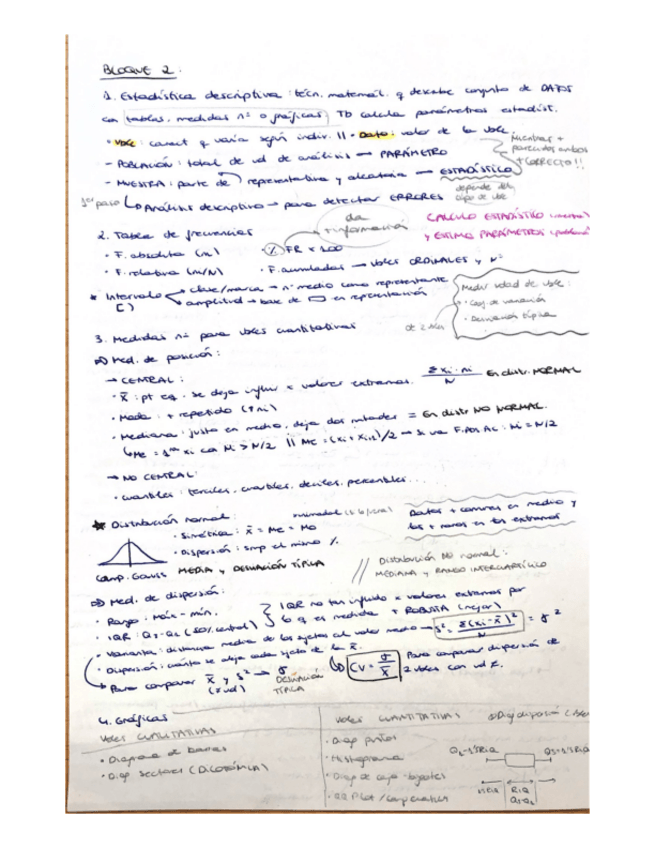 BLOQUE 2.
1. Estadística descriptiva: técn. matemát. q describe conjunto de DATOS
con tablas, medidas nº o gráficas. Tb calcula parámetros estadíst.
• Vble: caract q varía según indiv. || • Dato: valor de la vble
Mientras +
parecidos ambos
+ CORRECTO!!
- POBLACIÓN: total de ud de análisis → PARÁMETRO
- MUESTRA: parte de representativa y aleatoria → ESTADÍSTICO
depende del
tipo de vble
1er paso Análisis descriptivo → para detectar ERRORES
da
+ información
CALCULO ESTADÍSTICO (muestra)
y ESTIMO PARÁMETROS (población)
2. Tablas de frecuencias
• F. absoluta (ni) • % FR x 100
• F. relativa (ni/N) • F. acumuladas → vbles ORDINALES y nº
* Intervalo clase/marca → nº medio como representante
[ ) amplitud → base de ▭ en representación
Medir vdad de vble:
• Coef. de variación
• Desviación típica
de 2 vbles
3. Medidas nº para vbles cuantitativas
Med. de posición:
→ CENTRAL:
• x̄: pt eq. se deja influir x valores extremos. Σxi·ni / N En distr. NORMAL
• Moda: + repetido (↑ni)
• Mediana: justo en medio, deja dos mitades = En distr NO NORMAL.
Me = 1er xi con Ni > N/2 || Me = (xi + xi+1)/2 → si va F.ABS AC: Ni = N/2
→ NO CENTRAL:
• cuantiles: terciles, cuartiles, deciles, percentiles...
* Distribución normal:
• Simétrica: x̄ = Me = Mo
• Dispersión: smp el mismo %.
Datos + comunes en medio y
los + raros en los extremos
Camp. Gauss MEDIA y DESVIACIÓN TÍPICA
// Distribución NO normal:
MEDIANA y RANGO INTERCUARTÍLICO
Med. de dispersión:
• Rango: máx - mín.
• IQR: Q3-Q1 (50% central)
IQR no tan influido x valores extremos por
lo q es medida + ROBUSTA (mejor)
• Varianza: distancia media de los sujetos al valor medio → s² = Σ(xi-x̄)² / N = σ²
• Dispersión: cuánto se aleja cada sujeto de la x̄.
Para comparar x̄ y s² → σ
DESVIACIÓN
TÍPICA
CV = σ / x̄
Para comparar dispersión de
2 vbles con ud ≠.
4. Gráficas
Vbles CUALITATIVAS
• Diagrama de barras
• Diag sectores (DICOTÓMICA)
Vbles CUANTITATIVAS
• Diag puntos
• Histograma
• Diag de caja-bigotes
• QQ Plot / comparativa
Q1-1'5RIQ
RIQ
Q3-Q1